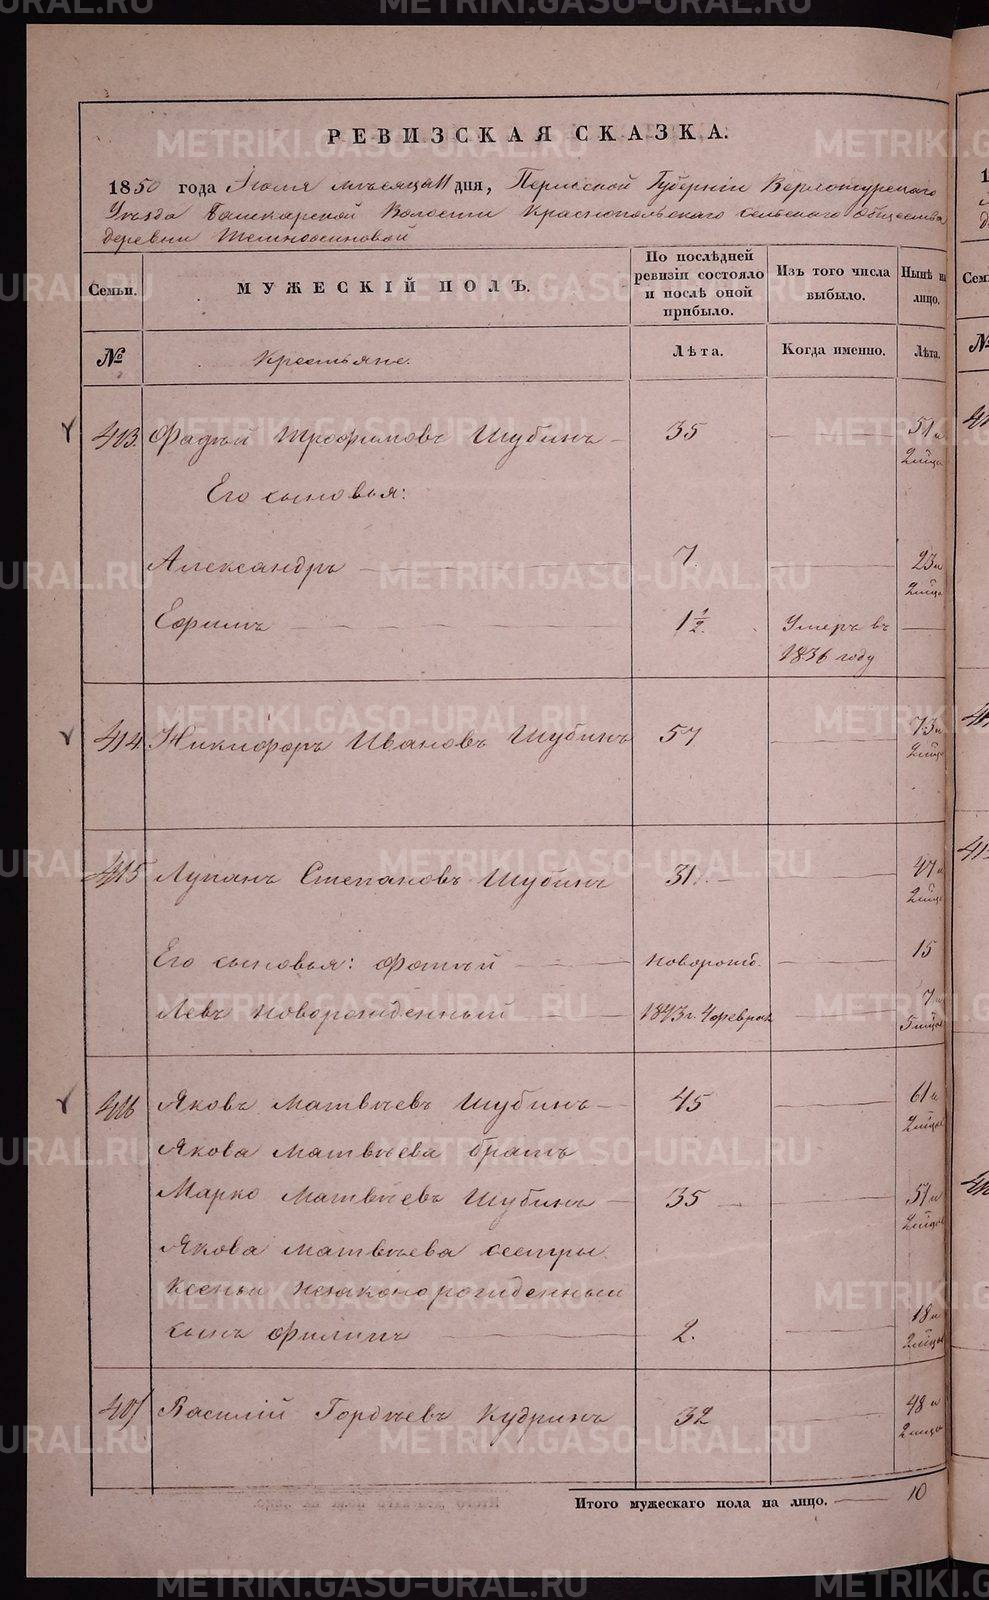 РЕВИЗСКАЯ СКАЗКА.
1850 года Іюля мѣсяца 11 дня, Пермской Губерніи Верхотурскаго
Уѣзда Башкарской Волости Краснопольскаго сельскаго общества
деревни
Семьи.
МУЖЕСКІЙ ПОЛЪ.
По послѣдней ревизіи состояло и послѣ оной прибыло.
Изъ того числа выбыло.
Нынѣ на лицо.
№
Крестьяне.
Лѣта.
Когда именно.
Лѣта.
413. Фадѣй Трофимовъ Шубинъ 35 51 и
2 мѣся
Его сыновья:
Александръ 7. 23 и
2 мѣся
Ефимъ 1 1/2. Умеръ въ
1836 году
414. Никифоръ Ивановъ Шубинъ 57 73 и
2 мѣся
415 Лупанъ Степановъ Шубинъ 31. 47 и
2 мѣся
Его сыновья: Фотѣй новорожд. 15
Левъ новорожденный 1843 г. 4 феврал 7 и
5 мѣся
416 Яковъ Матвѣевъ Шубинъ 45 61 и
2 мѣся
Якова Матвѣева братъ
Марко Матвѣевъ Шубинъ 35 51 и
2 мѣся
Якова Матвѣева сестры
Ксеньи незаконорожденный
сынъ Филипъ 2. 18 и
2 мѣся
Василій Гордѣевъ Кудринъ 32 48 и
2 мѣся
Итого мужескаго пола на лицо. 10
METRIKI.GASO-URAL.RU